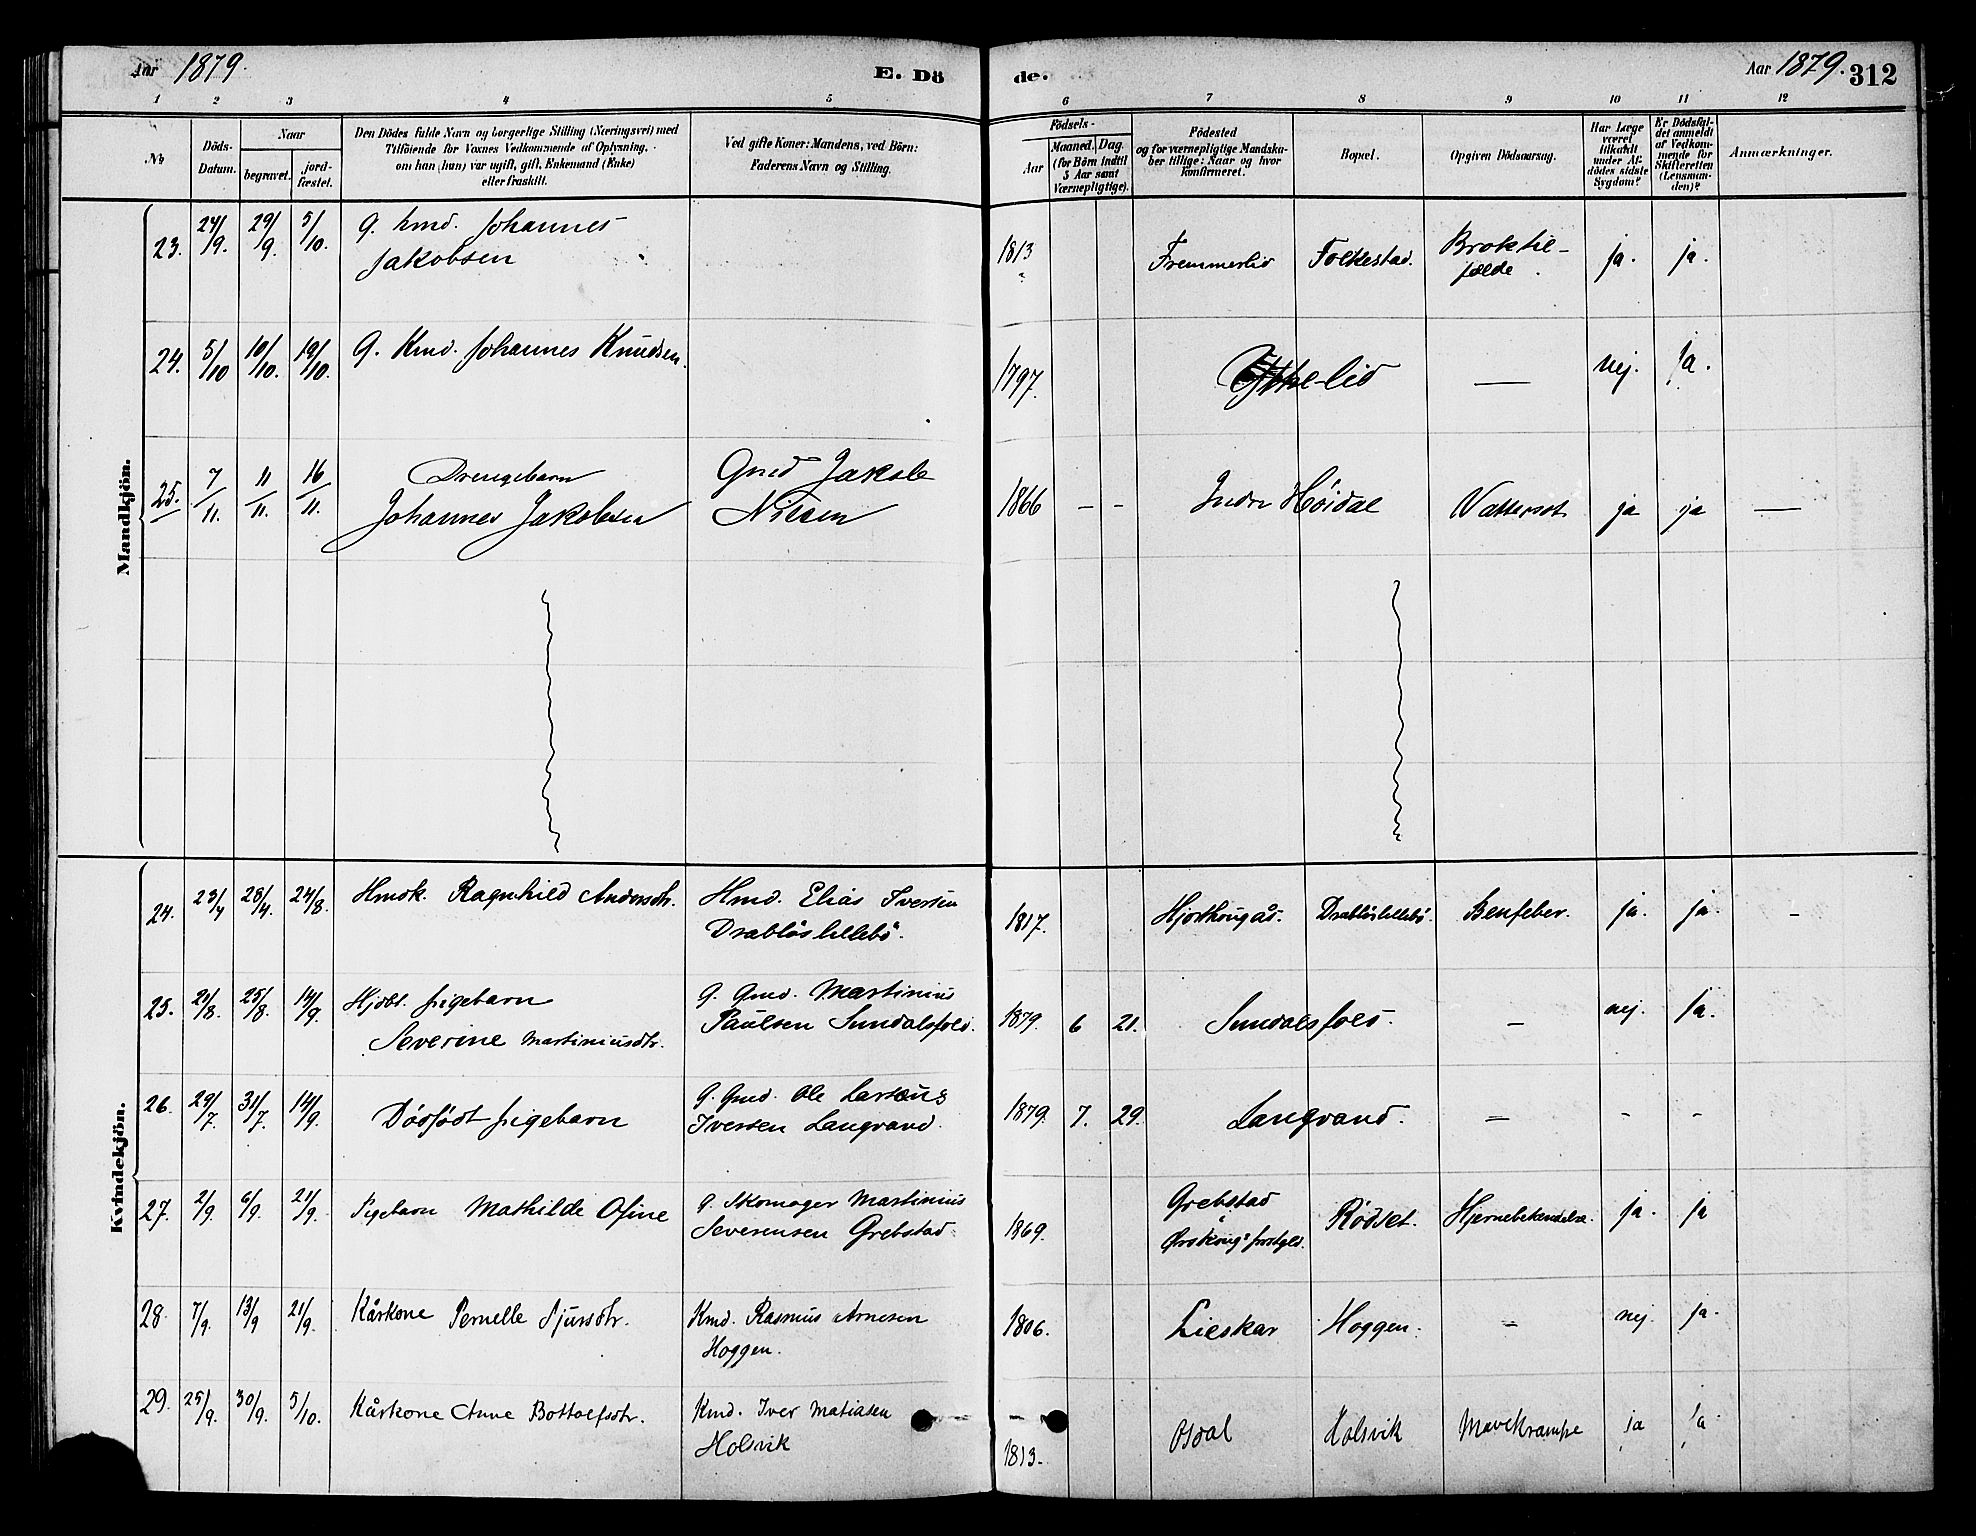 Aar 1879.
E. Dö
de.
Aar 1879. 312
1 2 3 4 5 6 7 8 9 10 11 12
No
Döds-
Datum.
Naar
begravet.
jord-
fæstet.
Den Dödes fulde Navn og borgerlige Stilling (Næringsvei) med
Tilföiende for Voxnes Vedkommende af Oplysning,
om han (hun) var ugift, gift, Enkemand (Enke)
eller fraskilt.
Ved gifte Koner: Mandens, ved Börn:
Faderens Navn og Stilling.
Födsels-
Aar
Maaned. Dag.
(for Börn indtil
5 Aar samt
Værnepligtige).
Födested
og for værnepligtige Mandska-
ber tillige: Naar og hvor
konfirmeret.
Bopæl.
Opgiven Dödsaarsag.
Har Læge
været
tilkaldt
under Af-
dödes sidste
Sygdom?
Er Dödsfal-
det anmeldt
af Vedkom-
mende for
Skifteretten
(Lensman-
den)?
Anmærkninger.
Mandkjön.
23. 24/9. 29/9. 5/10. G. hmd. Johannes
Jakobsen
1813 Fremmerlid Folkestad. Broktil-
fælde ja. ja.
24. 5/10 10/10. 19/10. G. Kmd. Johannes Knudsen.
1797. lid — nej. ja.
25. 7/11. 11/11. 16/11. Drengebarn
Johannes Jakobsen
Gmd Jakob
Nilsen
1866 - - Indre Höidal Vattersot ja ja —
Kvindekjön.
24. 23/4 28/4. 24/8. Hmdk. Ragnhild Andersdtr.
Hmd. Elias Iversen
Drabløslillebö.
1817. Hjorthougås. Drabløslillebö. Benfeber. ja. ja. -
25. 21/8. 25/8. 14/9. Hjdbt. pigebarn
Severine Martiniusdtr.
G. Gmd. Martinius
Paulsen Sundalsfols.
1879. 6 21. Sundalsfols. - nej. ja.
26. 29/7. 31/7. 14/9. Dödfödt pigebarn
G. Gmd. Ole Larsens
Iversen Langvand.
1879. 7. 29. Langvand. - - -
27. 2/9. 6/9. 21/9. Pigebarn Mathilde Ofine
G. Skomager Martinius
Severensen Grebstad.
1869. Grebstad
Ørskougs prstgld. Rödset. Hjernebetændelse. ja. ja
28. 7/9. 13/9 21/9. Kårkone Pernelle Sjursdtr.
Kmd. Rasmus Arnesen
Hoggen.
1806. Lieskar Hoggen. - nej. ja.
29. 25/9. 30/9. 5/10. Kårkone Anne Bottolfsdtr.
Kmd. Iver Matiasen
Holsvik
1813. Osdal Holsvik Mavekrampe ja ja.